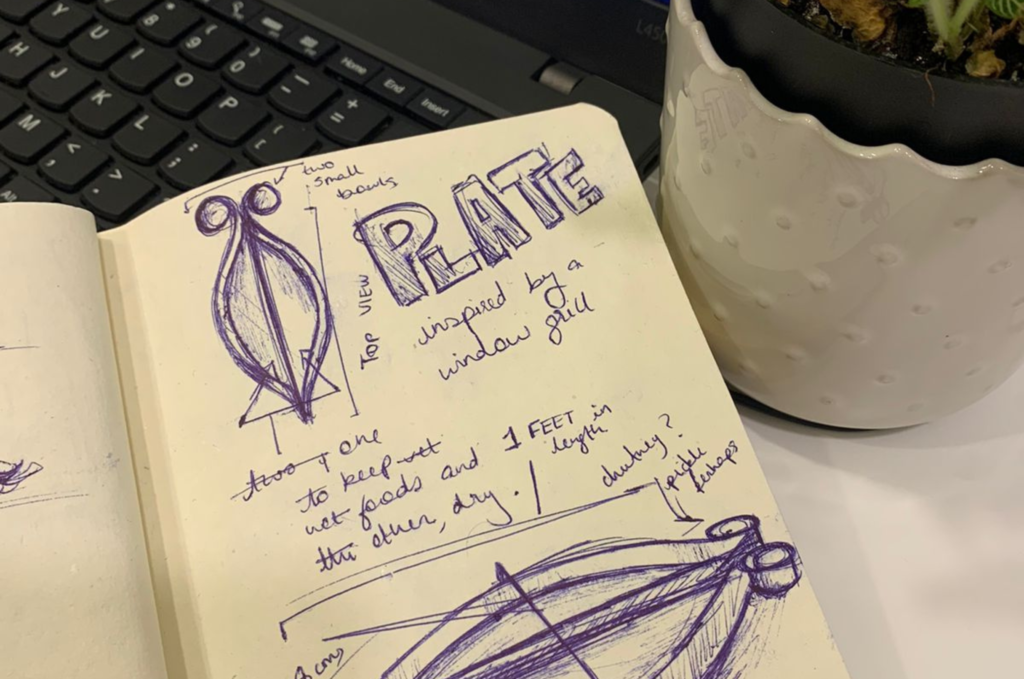 two
small
bowls
PLATE
TOP VIEW
inspired by a
window grill
two, one
to keep wet
wet foods and
the other, dry.
1 FEET in
length
chutney?
pickle
perhaps
cms
Y
U
8 *
9 (
0 )
- _
= +
H
J
I
O
P
[ {
K
L
; :
M
, <
. >
Home
End
Insert